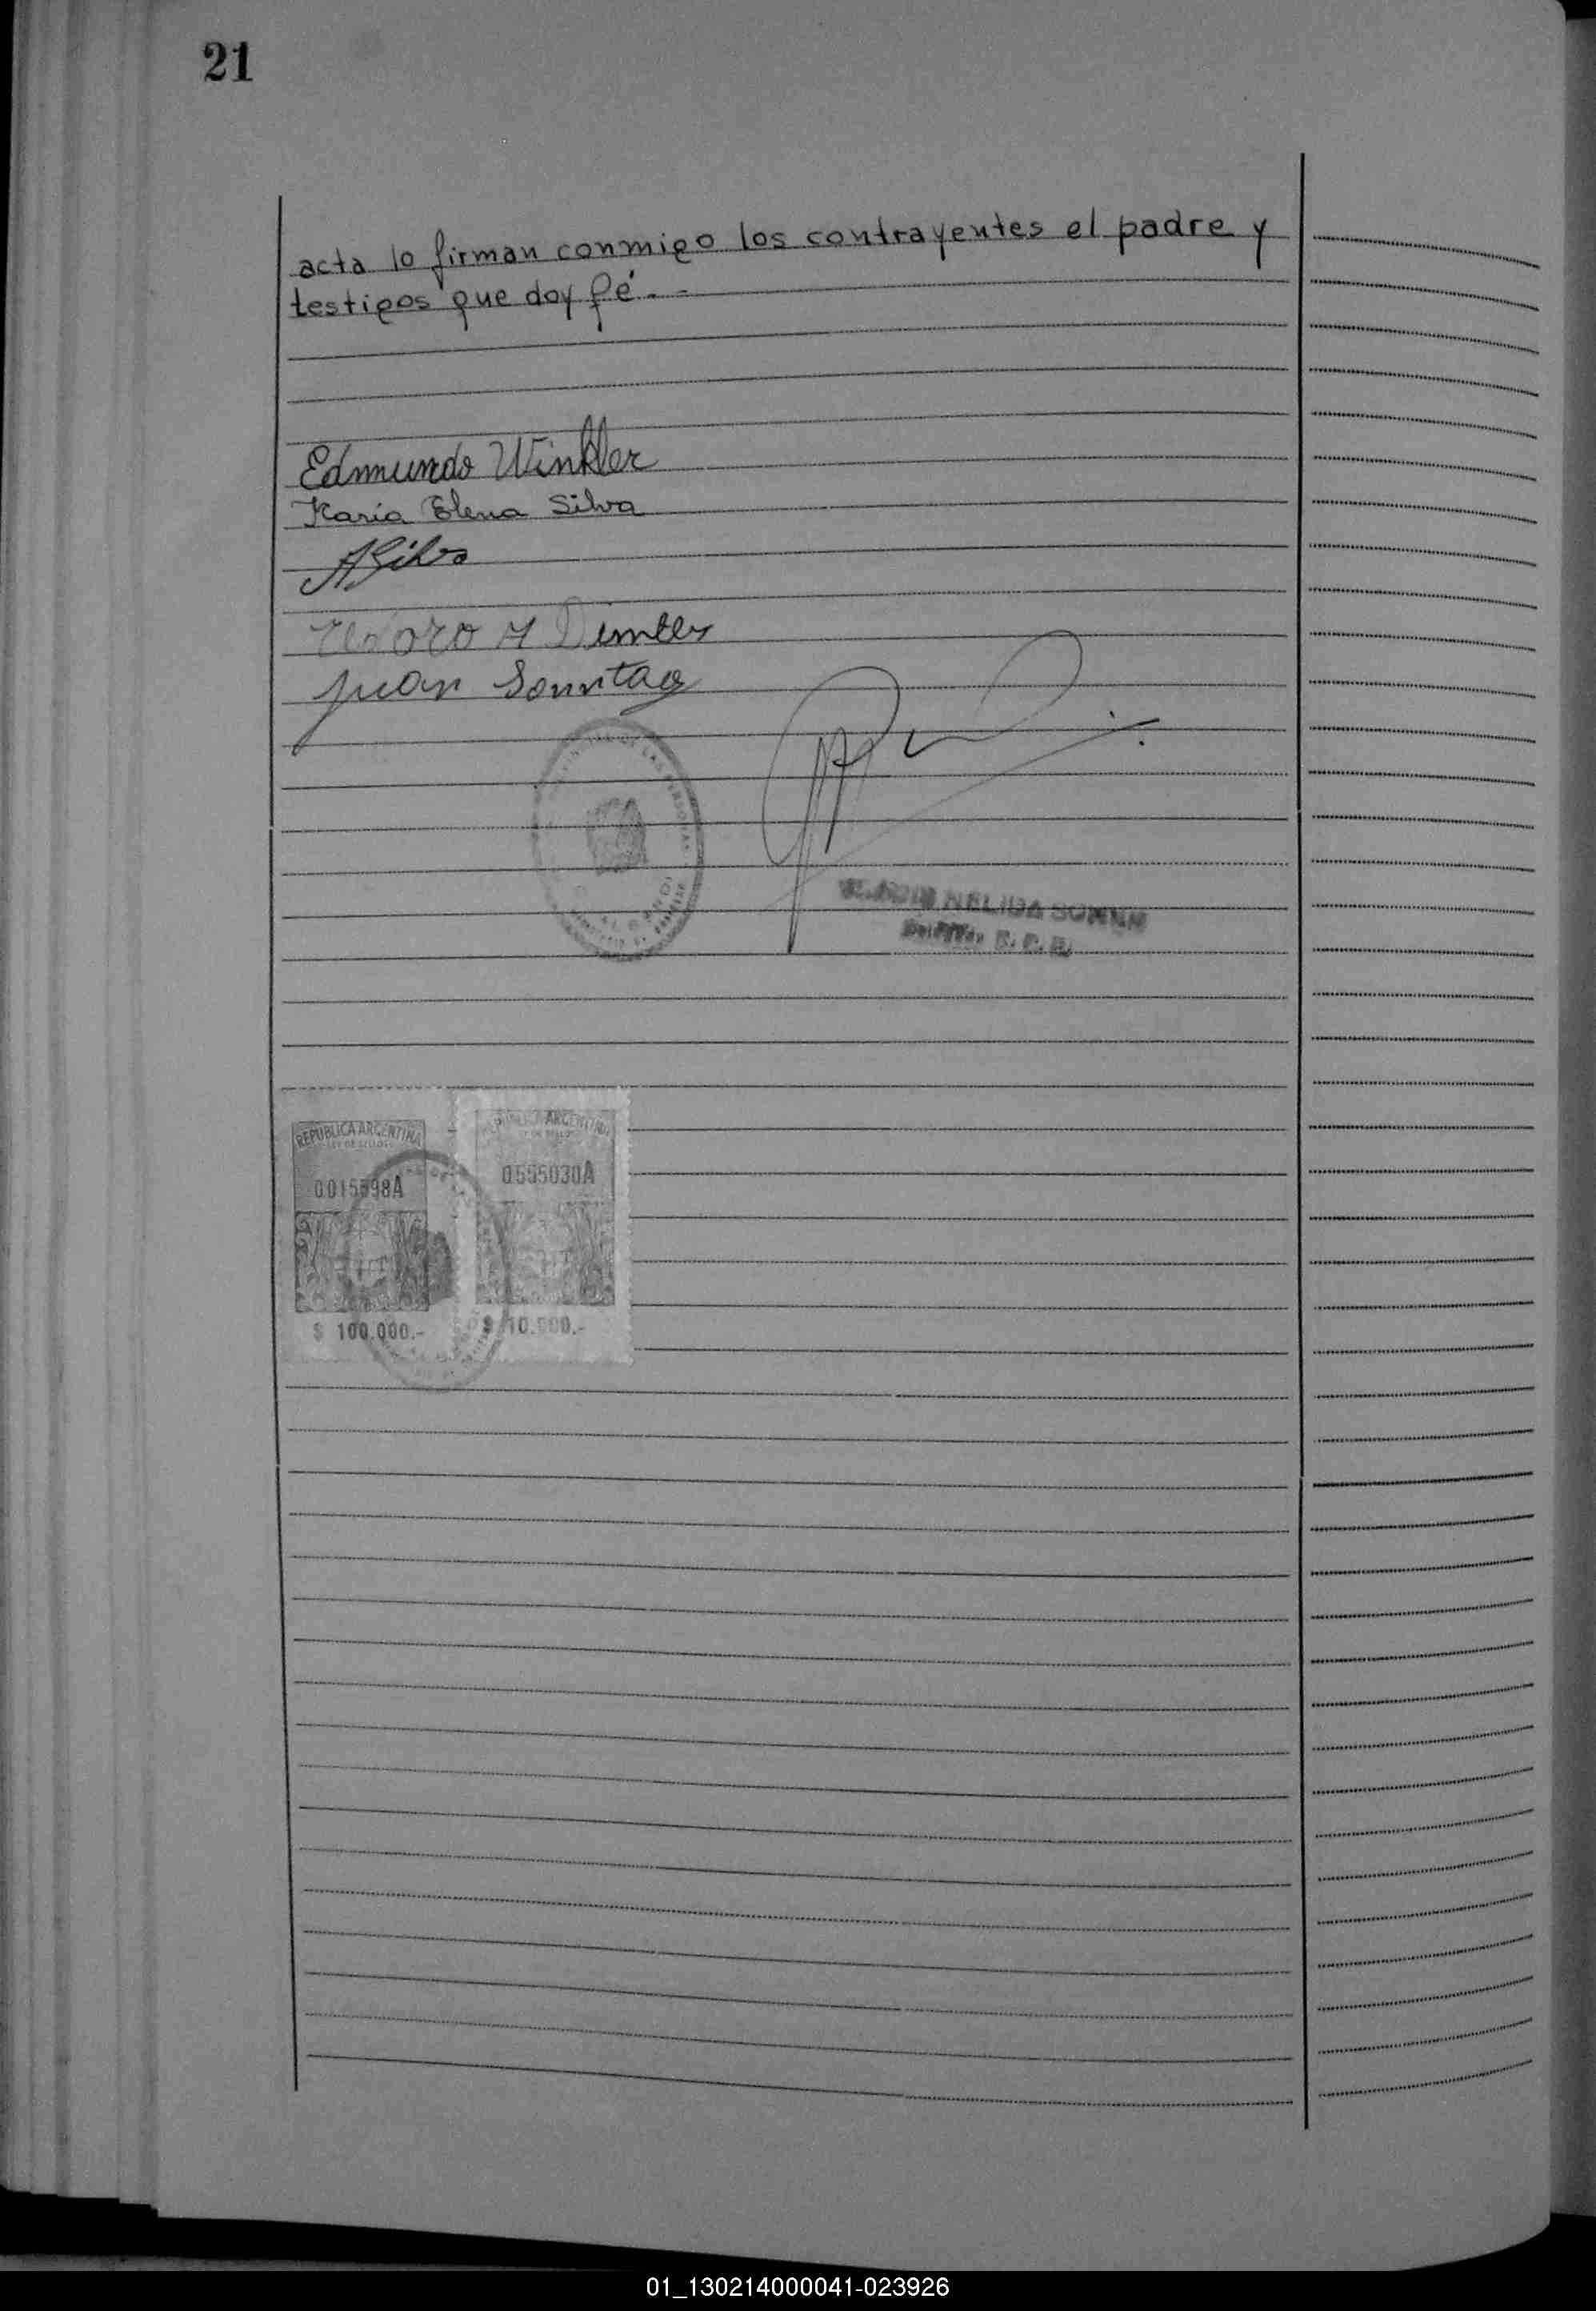 21
acta lo firman conmigo los contrayentes el padre y
testigos que doy fé.-
Edmundo Winkler
Maria Elena Silva
A Silva
Juan Sonntag
NELIDA
REPUBLICA ARGENTINA
$ 100.000.-
REPUBLICA ARGENTINA
0555030A
$ 10.000.-
01_130214000041-023926